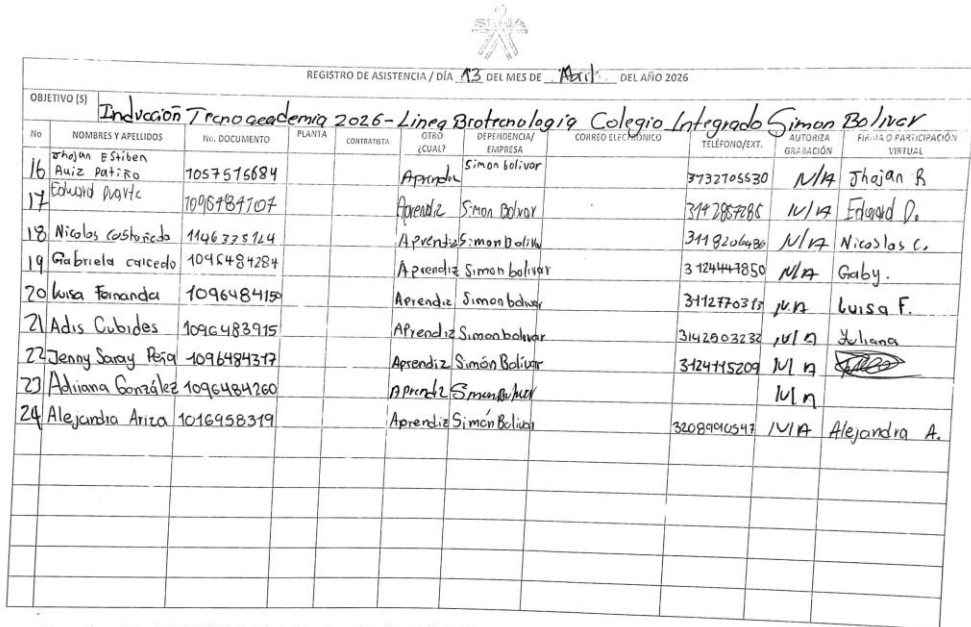 SENA
REGISTRO DE ASISTENCIA / DÍA 13 DEL MES DE Abril DEL AÑO 2026
OBJETIVO (S)
Inducción Tecnoacademia 2026 - Linea Biotecnologia Colegio Integrado Simon Bolivar
No NOMBRES Y APELLIDOS No. DOCUMENTO PLANTA CONTRATISTA OTRO ¿CUAL? DEPENDENCIA/ EMPRESA CORREO ELECTRÓNICO TELÉFONO/EXT. AUTORIZA GRABACIÓN FIRMA O PARTICIPACIÓN VIRTUAL
16 Jhojan Estiben Ruiz Patiño 1057576684 Aprendiz Simon bolivar 3132105530 N/A Jhojan R
17 Eduard Duarte 1096484107 Aprendiz Simon Bolivar 3142857286 N/A Eduard D.
18 Nicolas 1146335124 Aprendiz Simon Boliv 3118206486 N/A Nicoslas C.
19 Gabriela caicedo 1096484284 Aprendiz Simon bolivar 3124447850 N/A Gaby.
20 Luisa Fernanda 1096484150 Aprendiz Simon bolivar 3112770313 N.A Luisa F.
21 Adis Cubides 1096483915 Aprendiz Simon bolivar 3142503232 N/A Yuliana
22 Jenny Saray Peña 1096484317 Aprendiz Simón Bolivar 3124115209 N/A
23 Adriana González 1096484260 Aprendiz Simon Bolivar N/A
24 Alejandra Ariza 1016958319 Aprendiz Simón Bolivar 3208990547 N/A Alejandra A.